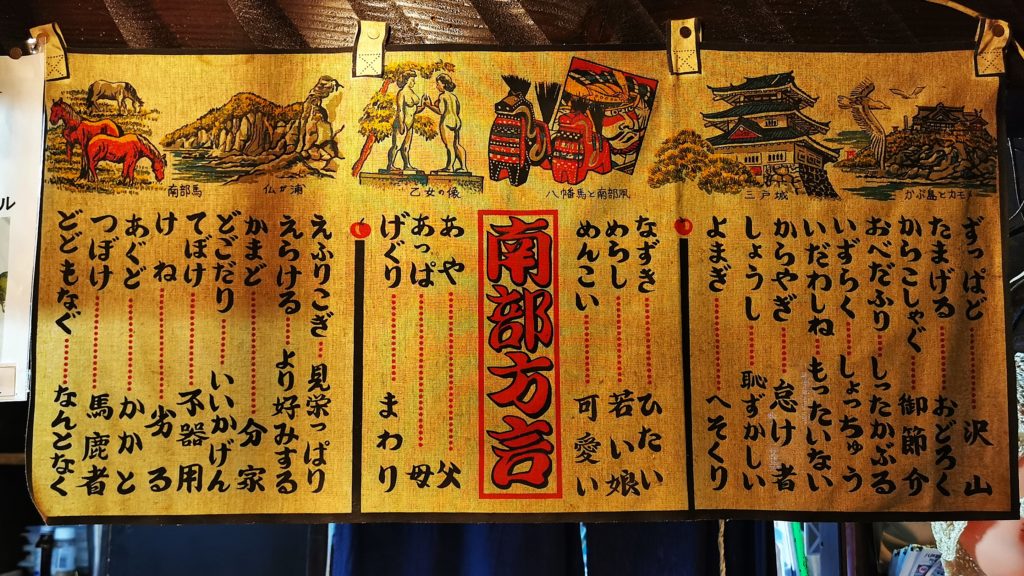 かぶ島とカモメ
三戸城
八幡馬と南部凧
乙女の像
仏ヶ浦
南部馬
ずっぱど……沢山
たまげる……おどろく
からこしゃぐ……御節介
おべだふり……しったかぶる
いずらく……しょっちゅう
いだわしね……もったいない
からやぎ……怠け者
しょうし……恥ずかしい
よまぎ……へそくり
なずき……ひたい
めらし……若い娘
めんこい……可愛い
南部方言
あや……父
あっぱ……母
げぐり……まわり
えふりこぎ……見栄っぱり
えらける……より好みする
かまど……分家
どごだり……いいかげん
てぼけ……不器用
けね……劣る
あぐど……かかと
つぼけ……馬鹿者
どどもなぐ……なんとなく
ル